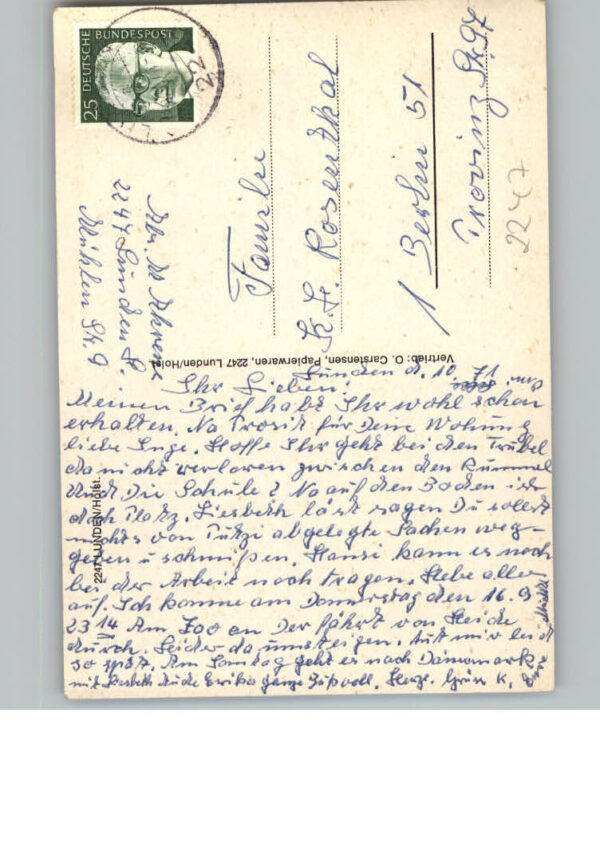 25 DEUTSCHE BUNDESPOST
22
2247 Lunden H.
Mühlen Str. 9
Familie
K. H. Rosenthal
1 Berlin 51
Provinz Str. 97
2247
Vertrieb: O. Carstensen, Papierwaren, 2247 Lunden/Holst.
2247 LUNDEN/Holst.
Lunden d. 10. 71
Ihr Lieben!
Meinen Brief habt Ihr wohl schon
erhalten. Na Prosit für Deine Wohnung
liebe Inge. Hoffe Ihr geht bei den Trubel
da nicht verloren zwischen den Rummel
Und Die Schule? Na auf den Boden ist
doch Platz. Liesbeth läst sagen Du sollst
nichts von Putzi abgelegte Sachen weg-
geben u schmißen. Hansi kann es noch
bei der Arbeit noch tragen. Hebe alles
auf. Ich komme am Donnerstag den 16. 9
23 14 Am Zoo an Der fährt von Heide
durch. Leider da umsteigen. tut mir leid
so spät. Am Sonntag geht es nach Dänemark
mit Liesbeth Erika ganze Herzl. Grüße